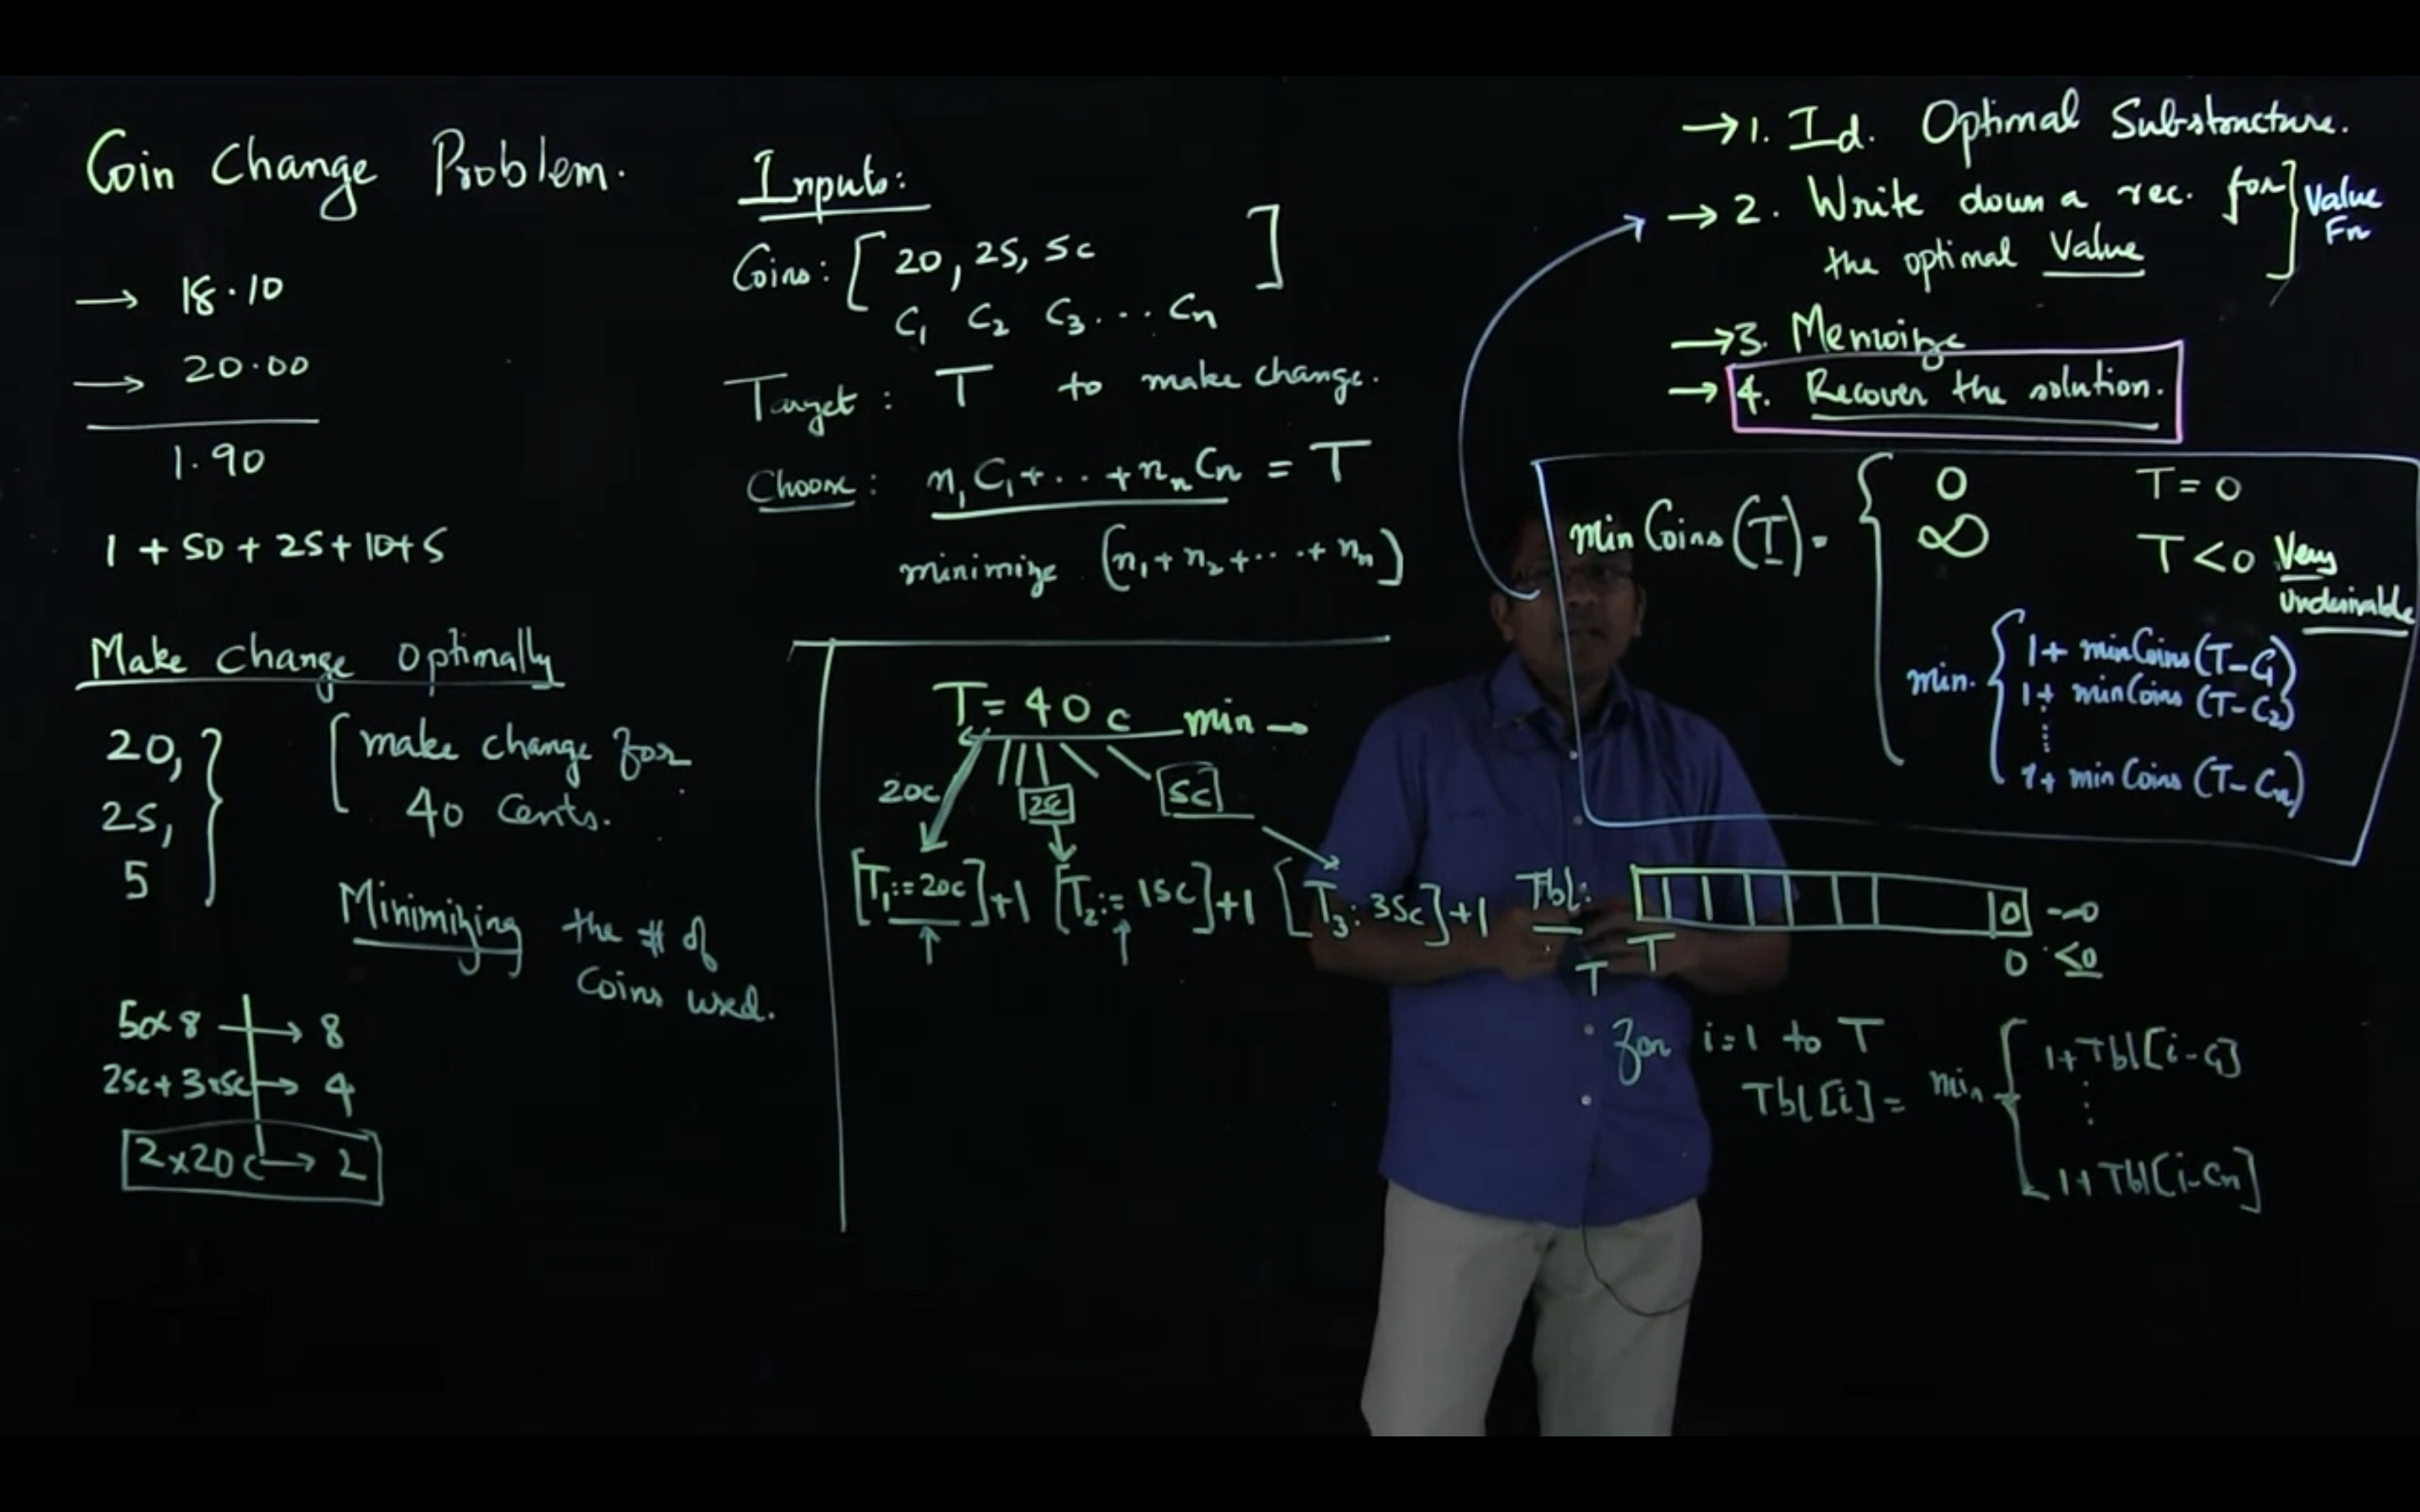 Coin Change Problem.
→ 18.10
→ 20.00
1.90
1 + 50 + 25 + 10 + 5
Make change optimally
20,
25,
5
make change for
40 Cents.
Minimizing the # of
Coins used.
5¢×8 → 8
25c + 3×5c → 4
2×20c → 2
Inputs:
Coins: [ 20, 25, 5c ]
C₁ C₂ C₃ ... Cn
Target: T to make change.
Choose: n₁C₁ + .. + nₙCₙ = T
minimize (n₁ + n₂ + ... + nₙ)
T = 40c min →
20c 25c 5c
[T₁ := 20c] + 1 [T₂ := 15c] + 1 [T₃ : 35c] + 1
→ 1. Id. Optimal Substructure.
→ 2. Write down a rec. for
the optimal Value
Value
Fn
→ 3. Memoize
→ 4. Recover the solution.
min Coins (T) = { 0 T = 0
∞ T < 0 Very
Undesirable
min. { 1 + minCoins (T - C₁)
1 + minCoins (T - C₂)
⋮
1 + minCoins (T - Cn)
Tbl: 0 → 0
T 0 <0
T
for i = 1 to T
Tbl[i] = min { 1 + Tbl[i - C₁]
⋮
1 + Tbl[i - Cn]